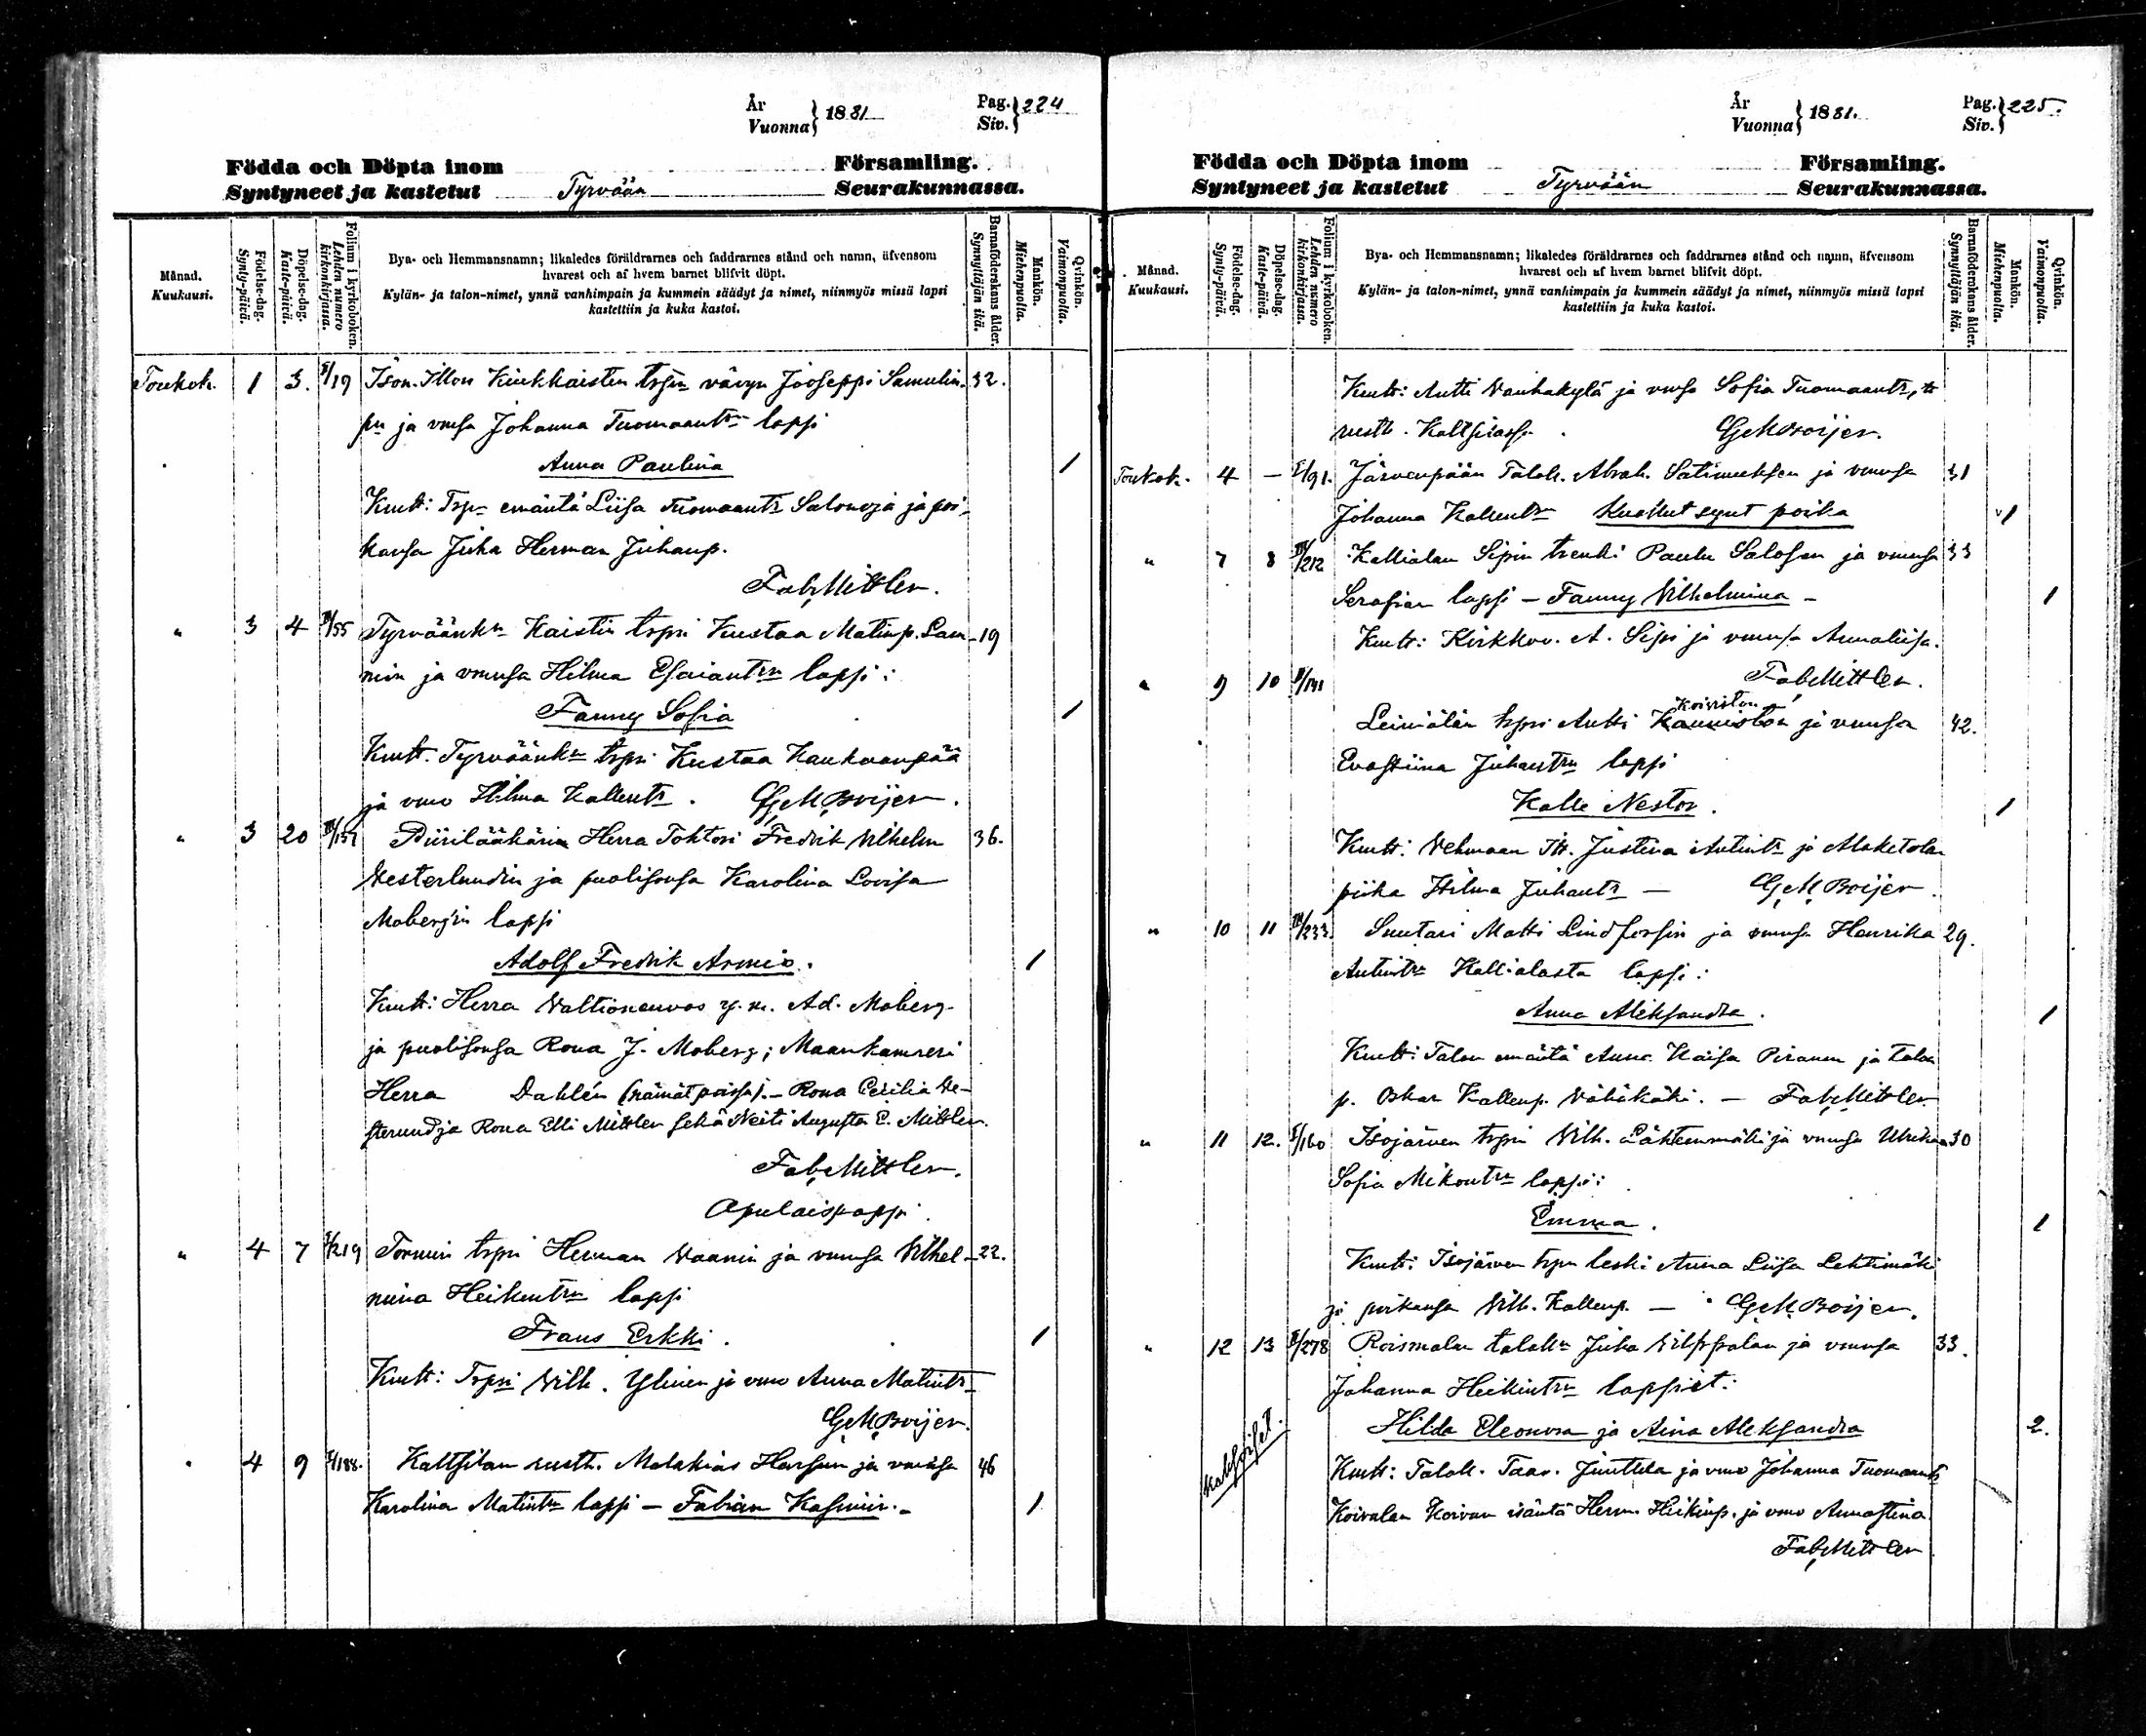 År
Vuonna } 1881
Pag.
Siv. } 224
Födda och Döpta inom Församling.
Syntyneet ja kastetut Tyrvään Seurakunnassa.
Månad.
Kuukausi.
Födelse-dag.
Synty-päivä.
Döpelse-dag.
Kaste-päivä.
Folium i kyrkoboken.
Lehden numero kirkonkirjassa.
Bya- och Hemmansnamn; likaledes föräldrarnes och faddrarnes stånd och namn, äfvensom
hvarest och af hvem barnet blifvit döpt.
Kylän- ja talon-nimet, ynnä vanhimpain ja kummein säädyt ja nimet, niinmyös missä lapsi
kastettiin ja kuka kastoi.
Barnaföderskans ålder.
Synnyttäjän ikä.
Mankön.
Miehenpuolia.
Qvinkön.
Vaimonpuolia.
Toukok. 1 3. /19 Ison-Illon Kiukkaisten trpin vävyn Jooseppi Samulin- 32.
pn ja vmsa Johanna Tuomaantrn lapsi
Anna Paulina 1
Kmtt: Trpn emäntä Liisa Tuomaantr Salonoja ja poi-
kansa Juha Herman Juhanp.
Fab. Mittler.
" 3 4 /55 Tyrväänkn Kaistin trpri Kustaa Matinp. Lam- 19
min ja vmnsa Hilma Esaiantrn lapsi:
Fanny Sofia 1
Kmtt. Tyrväänkn trpri Kustaa Kaukvanpää
ja vmo Hilma Kallentr. G. M. Boijer.
" 3 20 /151 Piirilääkärin Herra Tohtori Fredrik Vilhelm 36.
Westerlundin ja puolisonsa Karolina Lovisa
Mobergin lapsi
Adolf Fredrik Armio. 1
Kmtt: Herra Valtioneuvos y. m. Ad. Moberg
ja puolisonsa Rova J. Moberg; Maankamreri
Herra Dahlén (nämät poissa). – Rova Cecilia We-
sterlund ja Rova Elli Mittler sekä Neiti Augusta E. Mittler.
Fab. Mittler.
Apulaispappi.
" 4 7 /219 Tormin trpri Herman Vaanin ja vmnsa Vilhel- 22.
mina Heikintrn lapsi
Frans Erkki. 1
Kmtt: Trpri Vilh. Ylinen ja vmo Anna Matintr
G. M. Boijer.
" 4 9 /188. Kaltsilan rusth. Malakias Harsun ja vmnsa 46
Karolina Matintrn lapsi – Fabian Kasimir. – 1
År
Vuonna } 1881.
Pag.
Siv. } 225.
Födda och Döpta inom Församling.
Syntyneet ja kastetut Tyrvään Seurakunnassa.
Månad.
Kuukausi.
Födelse-dag.
Synty-päivä.
Döpelse-dag.
Kaste-päivä.
Folium i kyrkoboken.
Lehden numero kirkonkirjassa.
Bya- och Hemmansnamn; likaledes föräldrarnes och faddrarnes stånd och namn, äfvensom
hvarest och af hvem barnet blifvit döpt.
Kylän- ja talon-nimet, ynnä vanhimpain ja kummein säädyt ja nimet, niinmyös missä lapsi
kastettiin ja kuka kastoi.
Barnaföderskans ålder.
Synnyttäjän ikä.
Mankön.
Miehenpuolia.
Qvinkön.
Vaimonpuolia.
Kmtt: Antti Vanhakylä ja vmsa Sofia Tuomaantr,
rusth. Kaltsilassa. G. M. Boijer.
Toukok. 4 – /91. Järvenpään Taloll. Abrah. Satimuksen ja vmnsa 31
Johanna Kallentrn Kuollut synt poika 1
" 7 8 /212 Kallialan Sipin trenki Paulu Salosen ja vmnsa 33
Serafian lapsi – Fanny Vilhelmina – 1
Kmtt: Kirkkov. A. Sipi ja vmnsa Annaliisa.
Fab. Mittler.
" 9 10 /141 Koiviston
Leiniälän trpri Antti Kanniston ja vmnsa 42.
Evastiina Juhantrn lapsi
Kalle Nestor. 1
Kmtt: Vehmaan Itt. Justina Antintr ja Alaketolan
piika Hilma Juhantr – G. M. Boijer.
" 10 11 /233 Suutari Matti Lindforsin ja vmnsa Henrika 29.
Antintrn Kallialasta lapsi:
Anna Aleksandra. 1
Kmtt: Talon emäntä Anna Kaisa Piranen ja talon
p. Oskar Kallenp. Vähikäki. – Fab. Mittler.
" 11 12. /160 Isojärven trpri Vilh. Lähteenmäki ja vmnsa Ulrika 30
Sofia Mikontrn lapsi:
Emma. 1
Kmtt: Isojärven trpn leski Anna Liisa Lehtimäki
ja poikansa Vilh. Kallenp. – G. M. Boijer.
" 12 13 /278 Roismalan talolln Juha Vilppolan ja vmnsa 33.
Johanna Heikintrn lapsiet:
kaksoiset. Hilda Eleonora ja Aina Aleksandra 2.
Kmtt: Taloll. Taav. Junttila ja vmo Johanna Tuomaantr
Koivulan Koivun isäntä Herm. Heikinp. ja vmo Annastina
Fab. Mittler